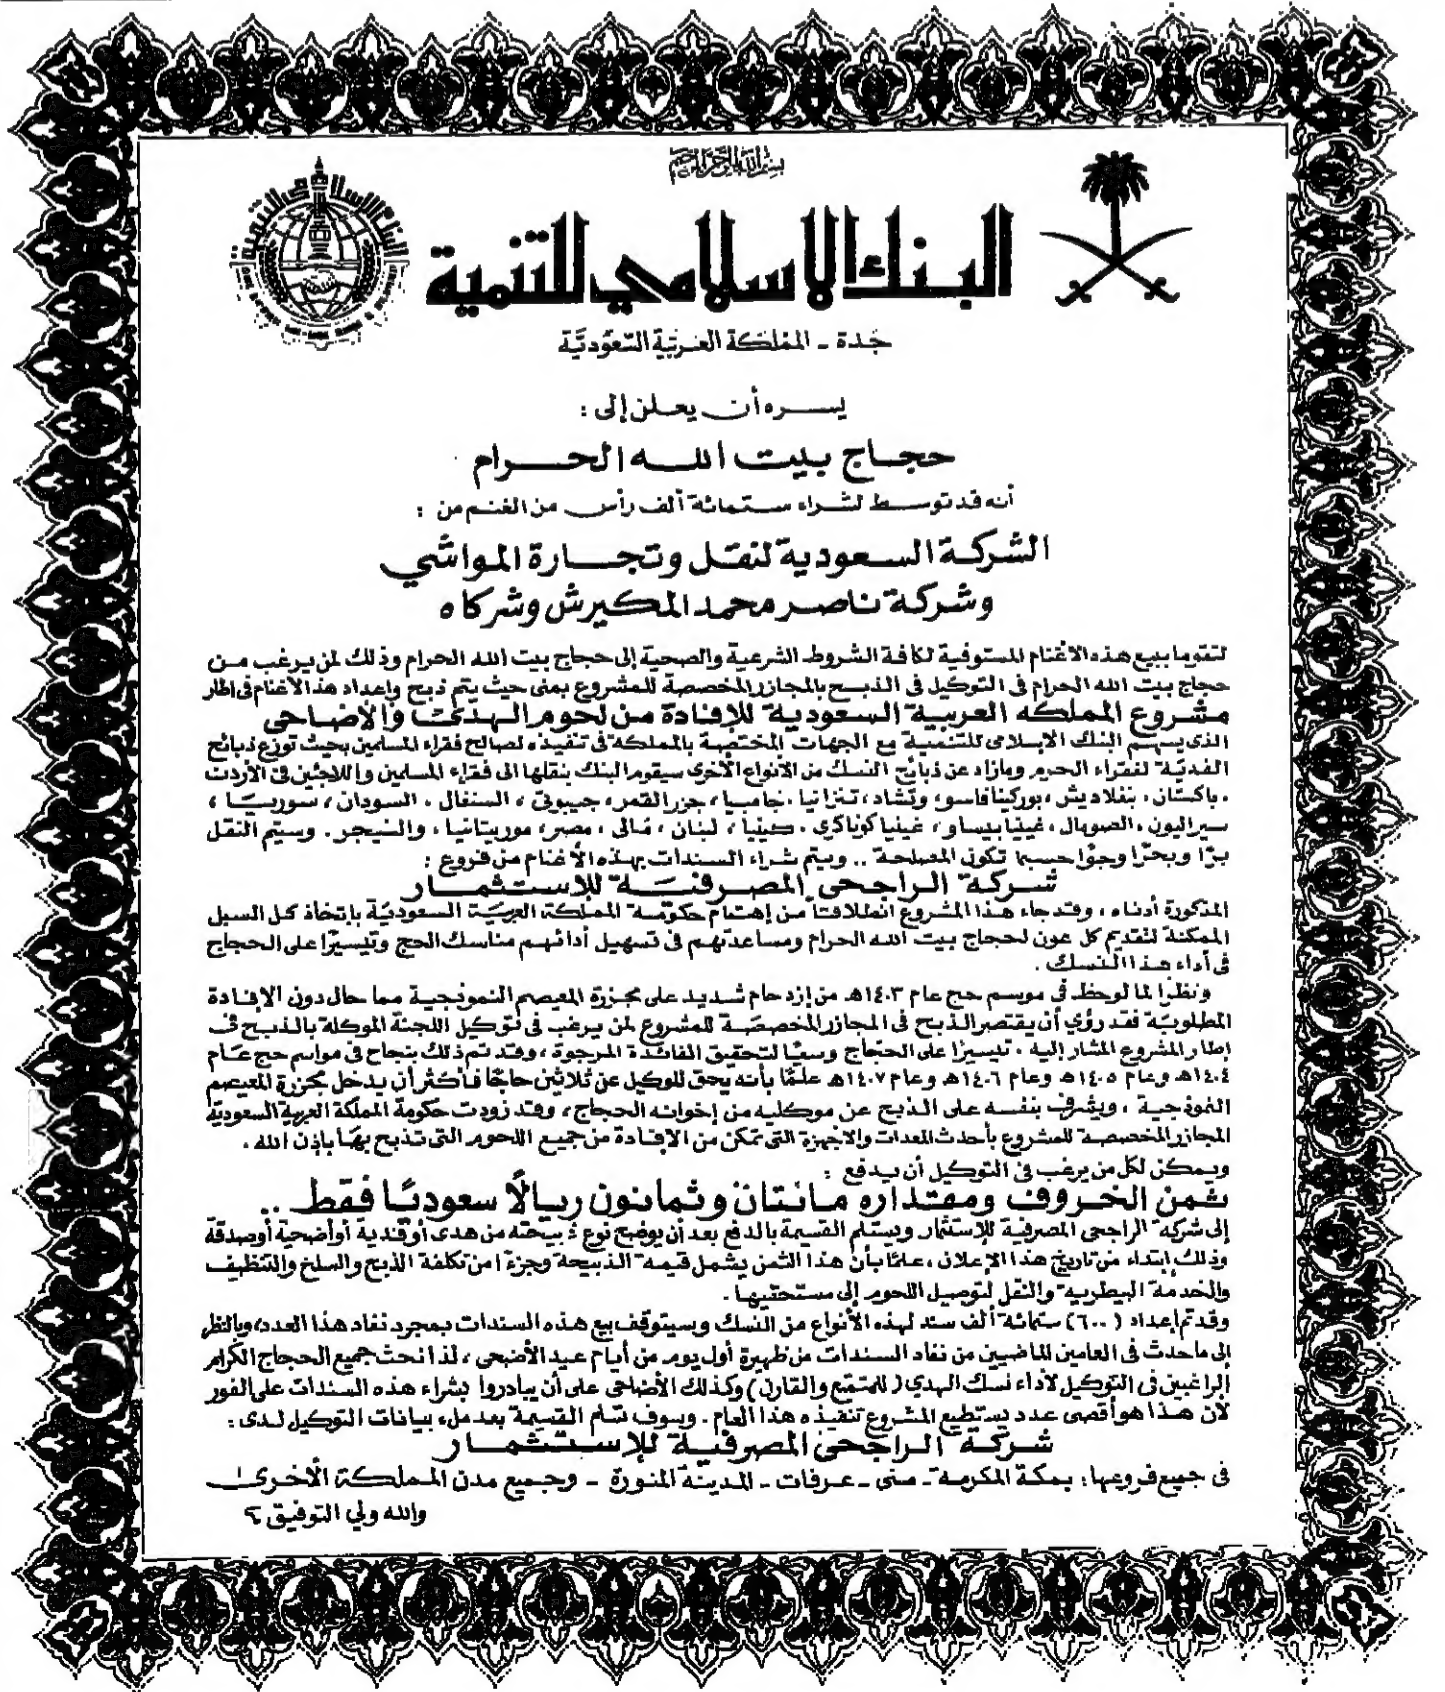 بسم الله الرحمن الرحيم
البنك الاسلامي للتنمية
جدة - المملكة العربية السعودية
يسره أن يعلن إلى :
حجاج بيت الله الحرام
أنه قد توسط لشراء ستمائة ألف رأس من الغنم من :
الشركة السعودية لنقل وتجارة المواشي
وشركة ناصر محمد المكيرش وشركاه
لتقوما ببيع هذه الاغنام المستوفية لكافة الشروط الشرعية والصحية إلى حجاج بيت الله الحرام وذلك لمن يرغب من
حجاج بيت الله الحرام في التوكيل في الذبح بالمجازر المخصصة للمشروع بمنى حيث يتم ذبح وإعداد هذا الأغنام في اطار
مشروع المملكه العربية السعودية للإفادة من لحوم الهدى والأضاحى
الذي يسهم البنك الاسلامى للتنمية مع الجهات المختصة بالمملكة في تنفيذه لصالح فقراء المسلمين بحيث توزع ذبائح
الفدية لفقراء الحرم ومازاد عن ذبائح النسك من الأنواع الأخرى سيقوم البنك بنقلها الى فقراء المسلمين واللاجئين في الأردن
، باكستان ، بنغلاديش ، بوركينافاسو ، وتشاد ، تنزانيا ، جامبيا ، جزر القمر ، جيبوتي ، السنغال ، السودان ، سوريـا ،
سيراليون ، الصومال ، غينيا بيساو ، غينيا كوناكري ، كينيا ، لبنان ، مالى ، مصر ، موريتانيا ، والنيجر . وسيتم النقل
برًا وبحرًا وجوًا حسبما تكون المصلحة .. ويتم شراء السندات بهذه الأغنام من فروع :
شركة الراجحى المصرفية للإستثمار
المذكورة أدناه ، وقد جاء هذا المشروع انطلاقاً من إهتمام حكومة المملكة العربية السعودية بإتخاذ كل السبل
الممكنة لتقديم كل عون لحجاج بيت الله الحرام ومساعدتهم في تسهيل أدائهم مناسك الحج وتيسيرًا على الحجاج
في أداء هذا النسك .
ونظرًا لما لوحظ في موسم حج عام ١٤٠٣هـ من إزدحام شديد على مجزرة المعيصم النموذجية مما حال دون الإفادة
المطلوبة فقد رؤي أن يقتصر الذبح في المجازر المخصصة للمشروع لمن يرغب في توكيل اللجنة الموكلة بالذبح في
إطار المشروع المشار إليه . تيسيرًا على الحجاج وسعيًا لتحقيق الفائدة المرجوة ، وقد تم ذلك بنجاح في مواسم حج عام
١٤٠٤هـ وعام ١٤٠٥هـ وعام ١٤٠٦هـ وعام ١٤٠٧هـ علمًا بأنه يحق للوكيل عن ثلاثين حاجًا فأكثر أن يدخل مجزرة المعيصم
النموذجية ، ويشرف بنفسه على الذبح عن موكليه من إخوانه الحجاج ، وقد زودت حكومة المملكة العربية السعودية
المجازر المخصصة للمشروع بأحدث المعدات والاجهزة التي تمكن من الإفادة من جميع اللحوم التى تذبح بها بإذن الله .
ويمكن لكل من يرغب في التوكيل أن يدفع :
ثمن الخروف ومقداره مائتان وثمانون ريالًا سعوديًا فقط ..
إلى شركة الراجحى المصرفية للإستثمار ويستلم القسيمة بالدفع بعد أن يوضح نوع ذبيحته من هدى أو فدية أو أضحية أو صدقة
وذلك إبتداء من تاريخ هذا الإعلان ، علمًا بأن هذا الثمن يشمل قيمة الذبيحة وجزءًا من تكلفة الذبح والسلخ والتنظيف
والخدمة البيطرية والنقل لتوصيل اللحوم إلى مستحقيها .
وقد تم إعداد ( ٦٠٠) ستمائة ألف سند لهذه الأنواع من النسك وسيتوقف بيع هذه السندات بمجرد نفاد هذا العدد، وبالنظر
إلى ماحدث في العامين الماضيين من نفاد السندات من ظهيرة أول يوم من أيام عيد الأضحى ، لذا نحث جميع الحجاج الكرام
الراغبين في التوكيل لأداء نسك الهدي ( للمتمتع والقارن ) وكذلك الأضاحى على أن يبادروا بشراء هذه السندات على الفور
لأن هذا هو أقصى عدد يستطيع المشروع تنفيذه هذا العام . وسوف تسلم القسيمة بعد ملء بيانات التوكيل لدى :
شركة الراجحى المصرفية للإستثمار
في جميع فروعها : بمكة المكرمة - منى - عرفات - المدينة المنورة - وجميع مدن المملكة الأخرى
والله ولي التوفيق